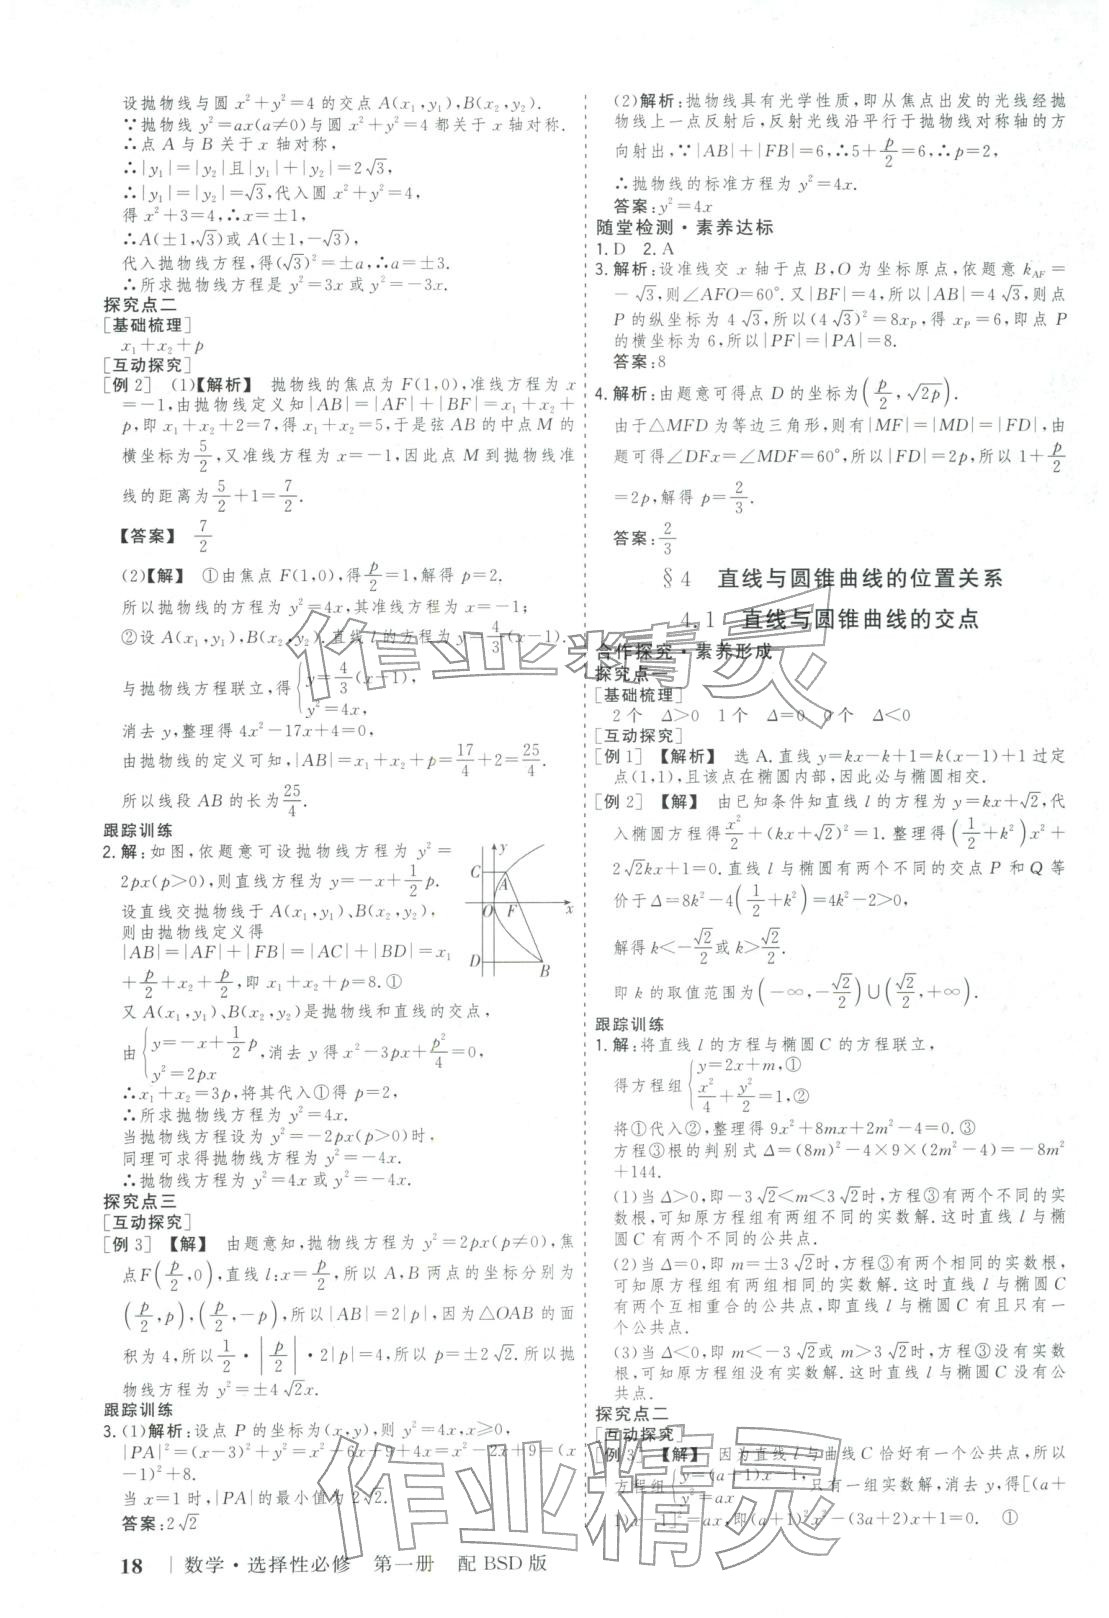 设抛物线与圆 x²+y²=4 的交点 A(x₁,y₁),B(x₂,y₂).
∵抛物线 y²=ax(a≠0)与圆 x²+y²=4 都关于 x 轴对称.
∴点 A 与 B 关于 x 轴对称,
∴|y₁|=|y₂|且|y₁|+|y₂|=2√3,
∴|y₁|=|y₂|=√3,代入圆 x²+y²=4.
得 x²+3=4,∴x=±1,
∴A(±1,√3)或 A(±1,-√3),
代入抛物线方程,得(√3)²=±a,∴a=±3.
∴所求抛物线方程是 y²=3x 或 y²=-3x.
探究点二
[基础梳理]
x₁+x₂+p
[互动探究]
[例 2] (1)【解析】 抛物线的焦点为 F(1,0),准线方程为 x
=-1,由抛物线定义知|AB|=|AF|+|BF|=x₁+x₂+
p,即 x₁+x₂+2=7,得 x₁+x₂=5,于是弦 AB 的中点 M 的
横坐标为5/2,又准线方程为 x=-1,因此点 M 到抛物线准
线的距离为5/2+1=7/2.
【答案】 7/2
(2)【解】 ①由焦点 F(1,0),得p/2=1,解得 p=2.
所以抛物线的方程为 y²=4x,其准线方程为 x=-1.
②设 A(x₁,y₁),B(x₂,y₂).直线 l 的方程为 y=4/3(x-1).
与抛物线方程联立,得{y=4/3(x-1), y²=4x,
消去 y,整理得 4x²-17x+4=0,
由抛物线的定义可知,|AB|=x₁+x₂+p=17/4+2=25/4.
所以线段 AB 的长为25/4.
跟踪训练
2.解:如图,依题意可设抛物线方程为 y²=
2px(p>0),则直线方程为 y=-x+1/2p.
设直线交抛物线于 A(x₁,y₁)、B(x₂,y₂),
则由抛物线定义得
|AB|=|AF|+|FB|=|AC|+|BD|=x₁
+p/2+x₂+p/2,即 x₁+x₂+p=8.①
又 A(x₁,y₁)、B(x₂,y₂)是抛物线和直线的交点,
由{y=-x+1/2p, y²=2px ,消去 y 得 x²-3px+p²/4=0.
∴x₁+x₂=3p,将其代入①得 p=2,
∴所求抛物线方程为 y²=4x.
当抛物线方程设为 y²=-2px(p>0)时,
同理可求得抛物线方程为 y²=-4x.
∴抛物线方程为 y²=4x 或 y²=-4x.
探究点三
[互动探究]
[例 3] 【解】 由题意知,抛物线方程为 y²=2px(p≠0),焦
点F(p/2,0),直线 l:x=p/2,所以 A,B 两点的坐标分别为
(p/2,p),(p/2,-p),所以|AB|=2|p|,因为△OAB 的面
积为 4,所以1/2·|p/2|·2|p|=4,所以 p=±2√2.所以抛
物线方程为 y²=±4√2x.
跟踪训练
3.(1)解析:设点 P 的坐标为(x,y),则 y²=4x,x≥0,
|PA|²=(x-3)²+y²=x²-6x+9+4x=x²-2x+9=(x
-1)²+8.
当 x=1 时,|PA|的最小值为 2√2.
答案:2√2
y
C
A
O
F
x
D
B
(2)解析:抛物线具有光学性质,即从焦点出发的光线经抛
物线上一点反射后,反射光线沿平行于抛物线对称轴的方
向射出,∵|AB|+|FB|=6,∴5+p/2=6,∴p=2,
∴抛物线的标准方程为 y²=4x.
答案:y²=4x
随堂检测·素养达标
1.D 2.A
3.解析:设准线交 x 轴于点 B,O 为坐标原点,依题意 k_AF=
-√3,则∠AFO=60°.又|BF|=4,所以|AB|=4√3,则点
P 的纵坐标为 4√3,所以(4√3)²=8x_P,得 x_P=6,即点 P
的横坐标为 6,所以|PF|=|PA|=8.
答案:8
4.解析:由题意可得点 D 的坐标为(p/2,√2p).
由于△MFD 为等边三角形,则有|MF|=|MD|=|FD|,由
题可得∠DFx=∠MDF=60°,所以|FD|=2p,所以 1+p/2
=2p,解得 p=2/3.
答案:2/3
§4 直线与圆锥曲线的位置关系
4.1 直线与圆锥曲线的交点
合作探究·素养形成
探究点一
[基础梳理]
2 个 Δ>0 1 个 Δ=0 0 个 Δ<0
[互动探究]
[例 1] 【解析】 选 A.直线 y=kx-k+1=k(x-1)+1 过定
点(1,1),且该点在椭圆内部,因此必与椭圆相交.
[例 2] 【解】 由已知条件知直线 l 的方程为 y=kx+√2,代
入椭圆方程得x²/2+(kx+√2)²=1.整理得(1/2+k²)x²+
2√2kx+1=0.直线 l 与椭圆有两个不同的交点 P 和 Q 等
价于 Δ=8k²-4(1/2+k²)=4k²-2>0,
解得 k<-√2/2或 k>√2/2.
即 k 的取值范围为(-∞,-√2/2)∪(√2/2,+∞).
跟踪训练
1.解:将直线 l 的方程与椭圆 C 的方程联立,
得方程组{y=2x+m,① x²/4+y²/2=1,②
将①代入②,整理得 9x²+8mx+2m²-4=0.③
方程③根的判别式 Δ=(8m)²-4×9×(2m²-4)=-8m²
+144.
(1)当 Δ>0,即-3√2<m<3√2时,方程③有两个不同的实
数根,可知原方程组有两组不同的实数解.这时直线 l 与椭
圆 C 有两个不同的公共点.
(2)当 Δ=0,即 m=±3√2时,方程③有两个相同的实数根,
可知原方程组有两组相同的实数解.这时直线 l 与椭圆 C
有两个互相重合的公共点,即直线 l 与椭圆 C 有且只有一
个公共点.
(3)当 Δ<0,即 m<-3√2或 m>3√2时,方程③没有实数
根,可知原方程组没有实数解.这时直线 l 与椭圆 C 没有公
共点.
探究点二
[互动探究]
[例 3] 【解】 因为直线 l 与曲线 C 恰好有一个公共点,所以
方程组{y=(a+1)x-1, y²=ax 只有一组实数解,消去 y,得[(a+
1)x-1]²=ax,即(a+1)²x²-(3a+2)x+1=0 ①
18 | 数学·选择性必修 第一册 配 BSD 版
作业精灵
作业精灵